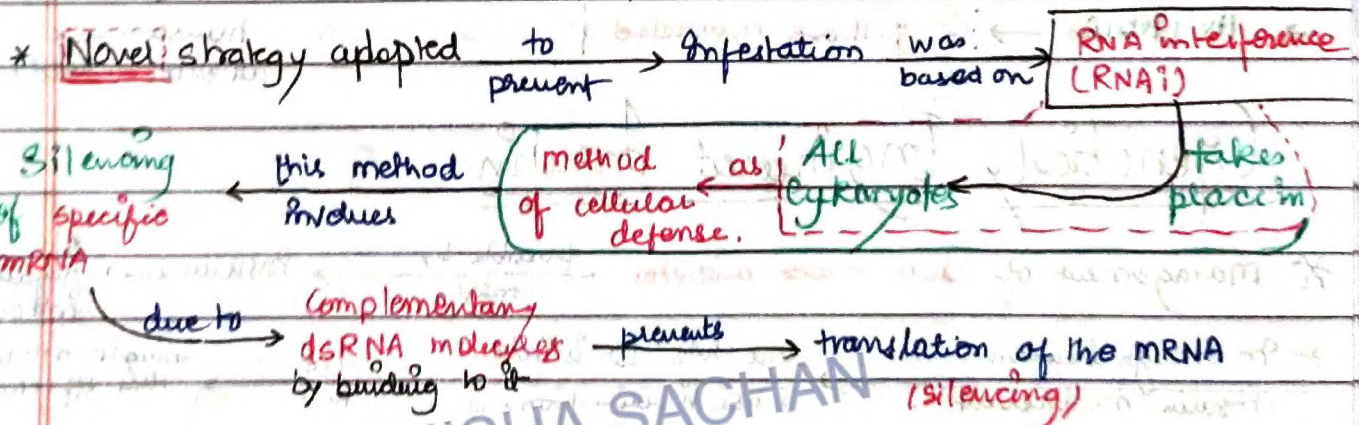 * Novel strategy adopted to prevent → Infestation was based on → RNA interference (RNAi)
takes place in
All Eykaryotes
as
method of cellular defense.
this method involves
Silencing of specific mRNA
due to → Complementary dsRNA molecules by binding to it prevents → translation of the mRNA (silencing)
SACHAN